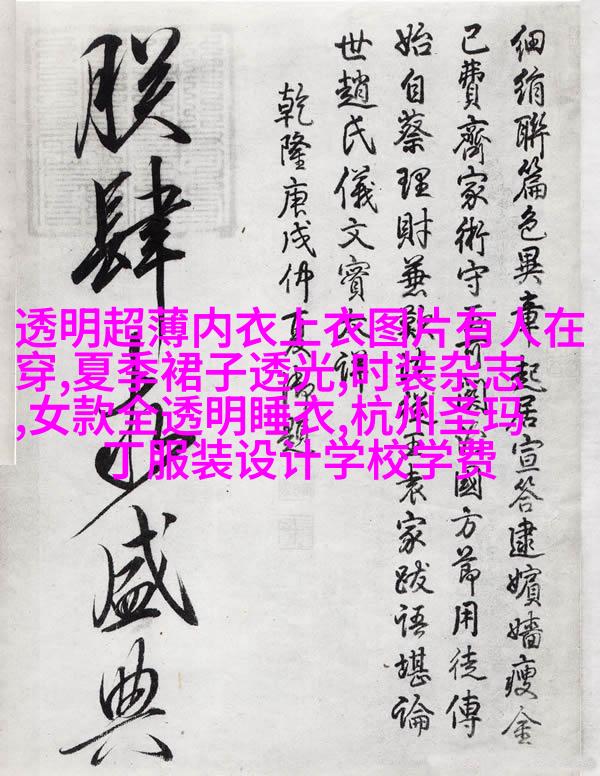 細絹聯篇色異章起居宣答逮嬪嬙瘦金
已費齊家術守國方節用徒傳
始自蔡理財兼王袁家跋語堪論
世趙氏儀文實
乾隆庚戌仲夏御題
朕肆盛典
透明超薄内衣上衣图片有人在
穿,夏季裙子透光,时装杂志
,女款全透明睡衣,杭州圣玛
丁服装设计学校学费